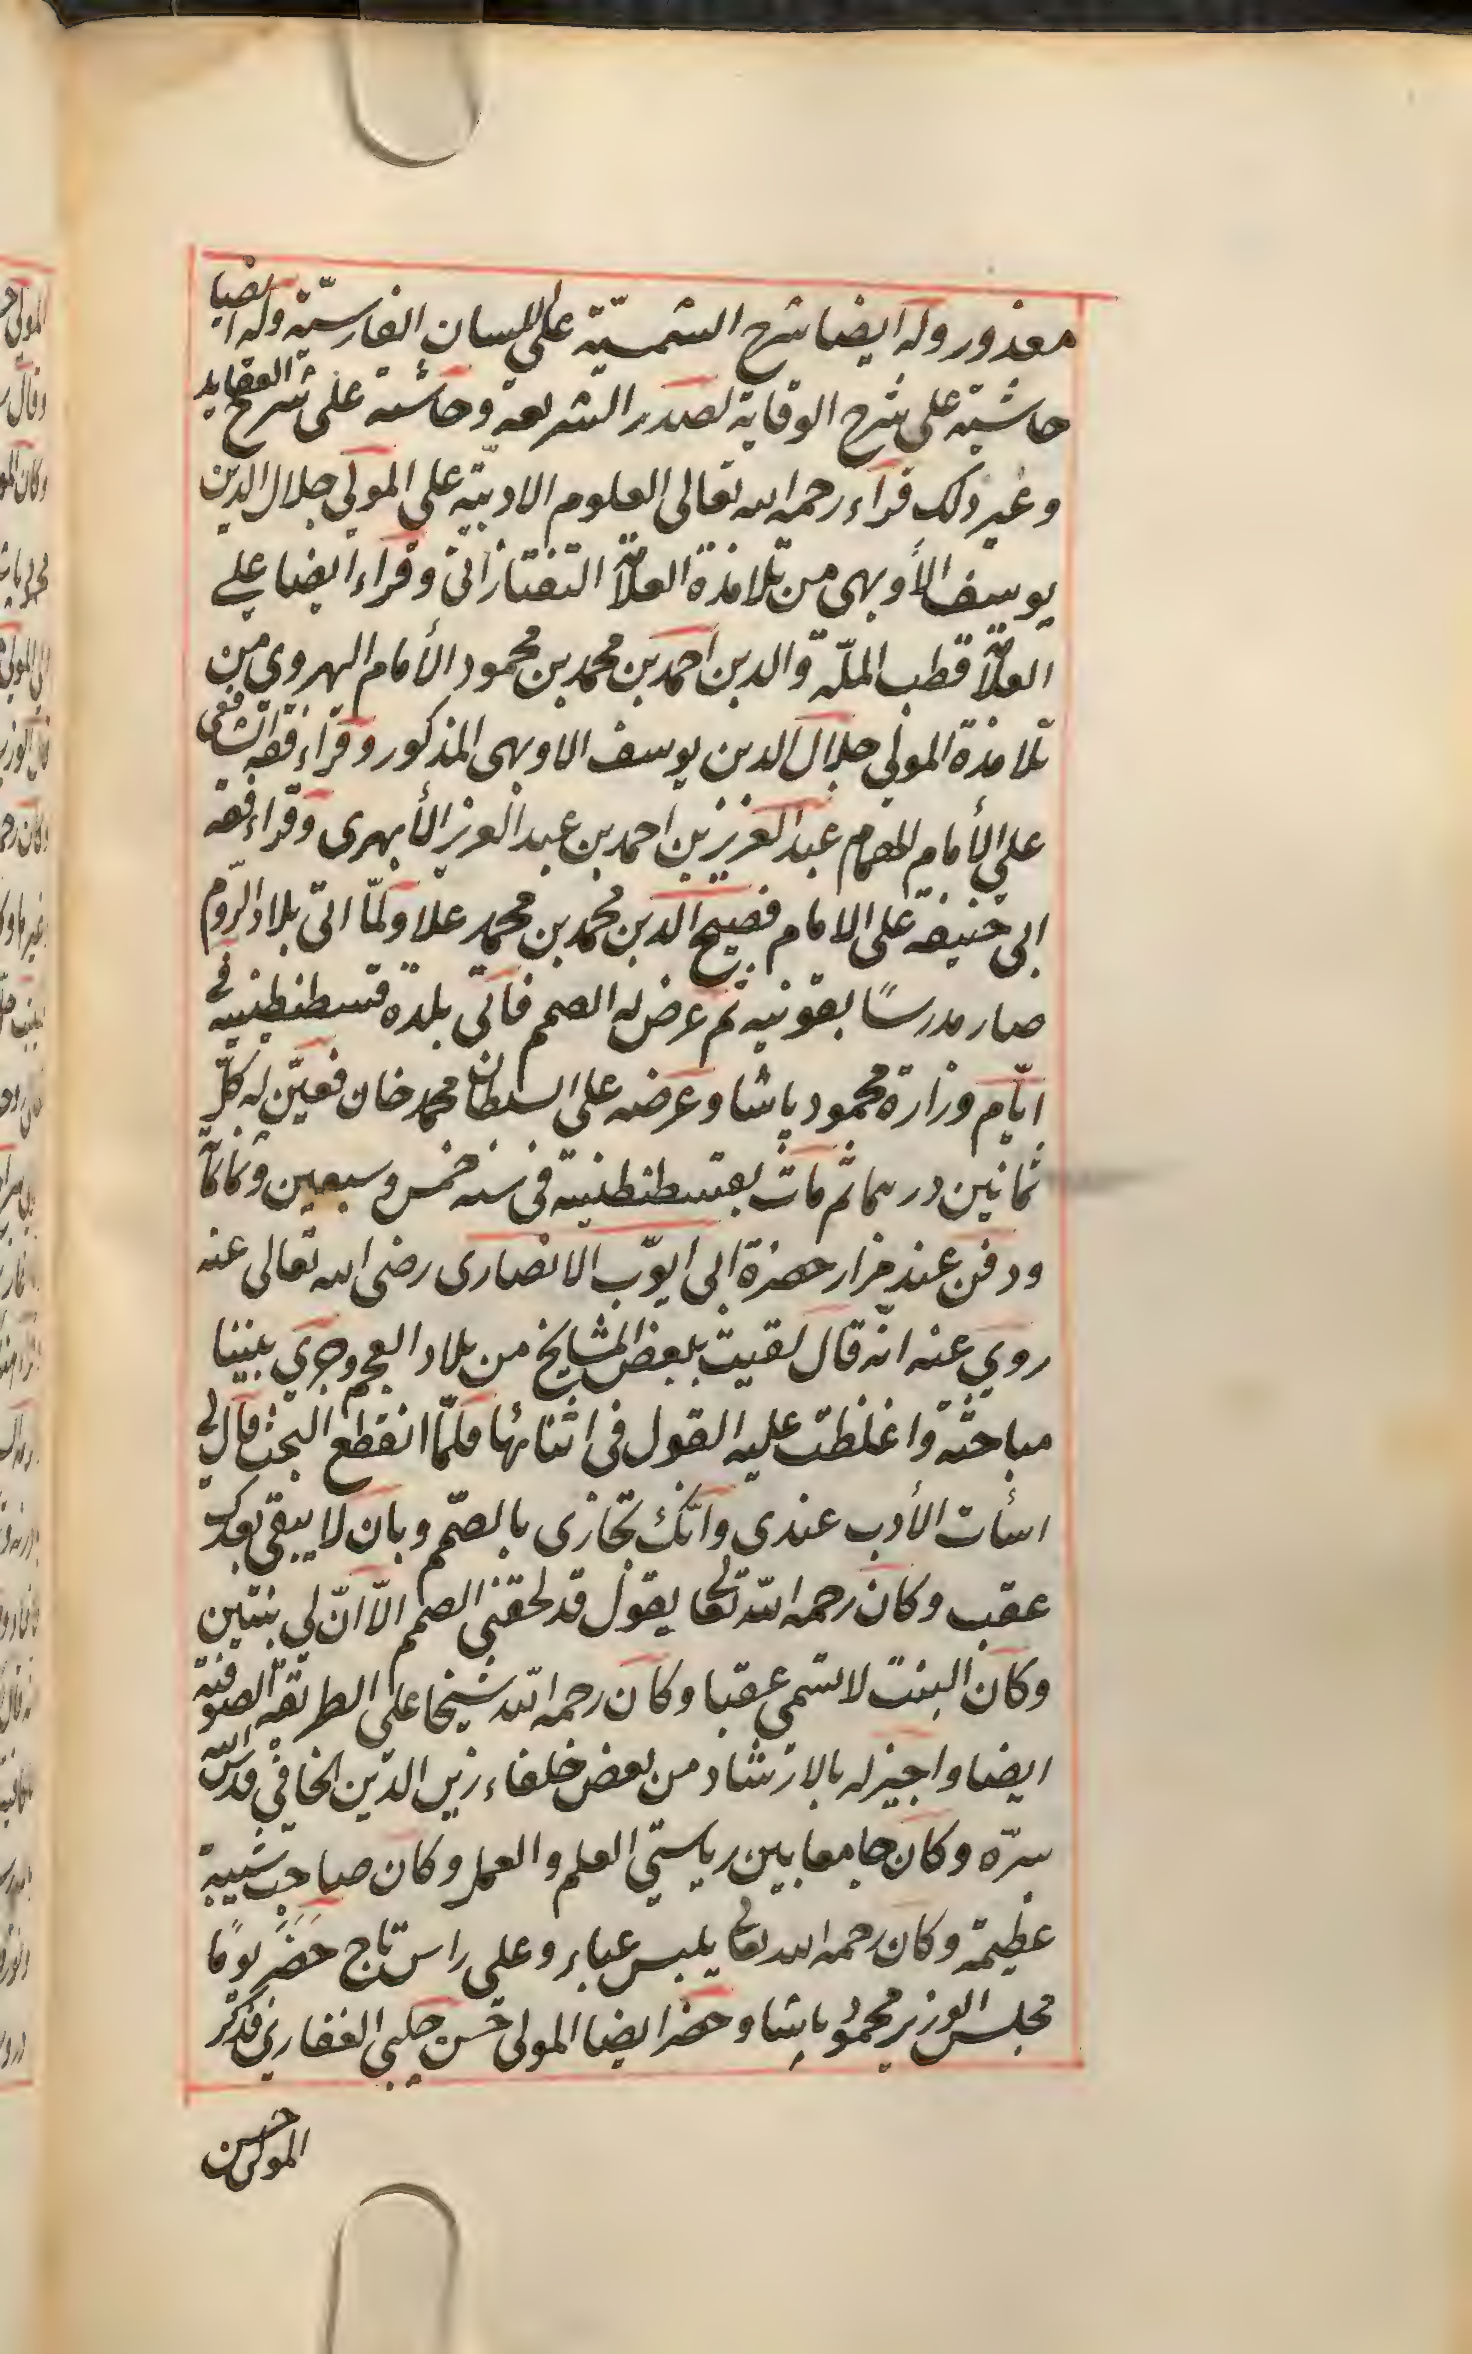 معذور وله ايضا شرح الشمسيّة على اللسان الفارسيّة وله ايضا
حاشية على شرح الوقاية لصدر الشريعة وحاشية على شرح العقايد
وغير ذلك قراء رحمه الله تعالى العلوم الادبيّة على المولى جلال الدين
يوسف الأوبهى من تلامذة العلاّمة التفتازانى وقراء ايضا على
العلاّمة قطب الملّة والدين احمد بن محمد بن محمود الأمام الهروي من
تلامذة المولى جلال الدين يوسف الاوبهى المذكور وقراء فقه الشافعى
على الأمام الهمام عبد العزيز بن احمد بن عبد العزيز الأبهرى وقراء فقه
ابى حنيفة على الامام فصيح الدين محمد بن محمد علا ولمّا اتى بلاد الرّوم
صار مدرسًا بقونيه ثم عرض له الصمم فأتى بلدة قسطنطنيه فى
ايّام وزارة محمود پاشا وعرضه على السلطان محمد خان فعيّن له كلّ
ثمانين درهما ثم مات بقسطنطنية فى سنه خمس وسبعين وثمانمأة
ودفن عند مزار حضرة ابى ايوّب الانصارى رضى الله تعالى عنه
روي عنه انّه قال لقيت بعض المشايخ من بلاد العجم وجرى بيننا
مباحثة واغلظت عليه القول فى اثنائها فلمّا انقطع البحث قال لى
اسأت الأدب عندى وانّك تجازى بالصّمم وبان لا يبقى بعدك
عقب وكان رحمه الله تعالى يقول قد لحقنى الصمم الاّ انّ لى بنتين
وكان البنت لا تسمى عقبا وكان رحمه الله شيخا على الطريقة الصوفية
ايضا واجيز له بالارشاد من بعض خلفاء زين الدّين الخافي قدس الله
سرّه وكان جامعا بين رياستي العلم والعمل وكان صاحب شيبة
عظيمة وكان رحمه الله تعالى يلبس عباء وعلى راس تاج حَضَر يومًا
مجلس الوزير محمود پاشا وحضر ايضا المولى حسن چلبى الفناري فذكر
المولى حسن